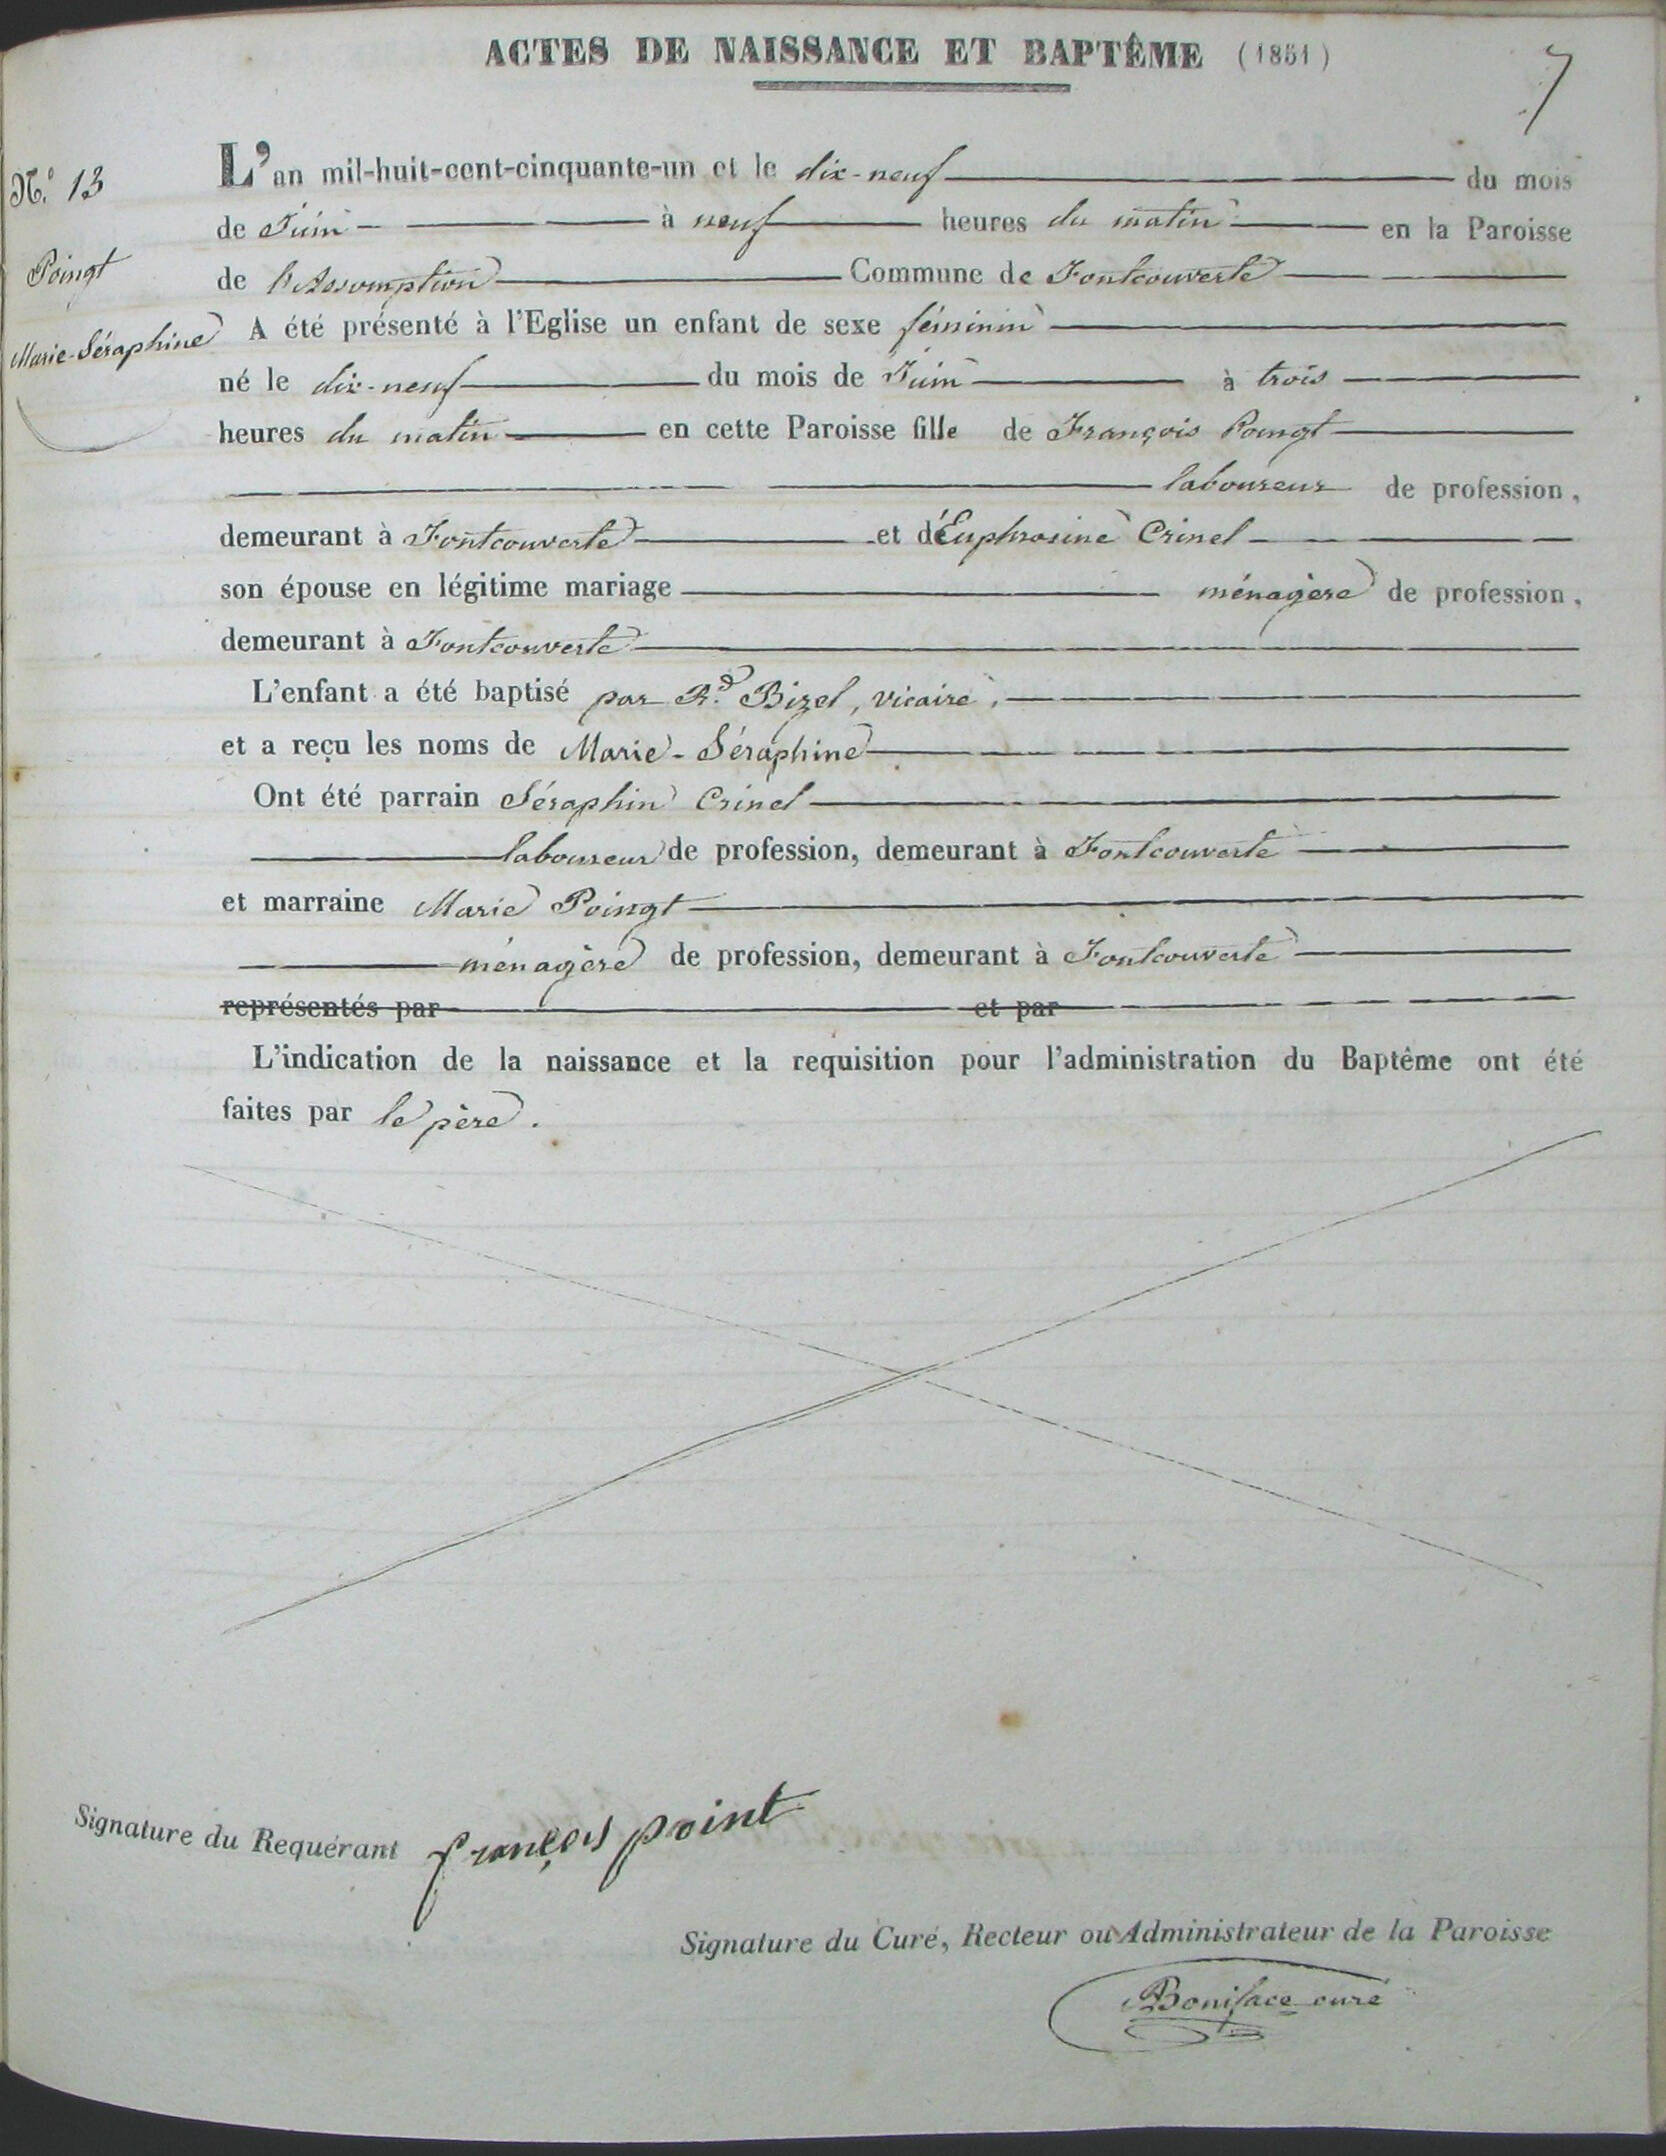 ACTES DE NAISSANCE ET BAPTÊME (1851)
7
N.o 13
Poingt
Marie-Séraphine
L'an mil-huit-cent-cinquante-un et le dix-neuf du mois
de Juin à neuf heures du matin en la Paroisse
de l'Assomption Commune de Fontcouverte
A été présenté à l'Eglise un enfant de sexe féminin
né le dix-neuf du mois de Juin à trois
heures du matin en cette Paroisse fille de François Poingt
laboureur de profession,
demeurant à Fontcouverte et d'Euphrosine Crinel
son épouse en légitime mariage ménagère de profession,
demeurant à Fontcouverte
L'enfant a été baptisé par R.d Bizel, vicaire,
et a reçu les noms de Marie-Séraphine
Ont été parrain Séraphin Crinel
laboureur de profession, demeurant à Fontcouverte
et marraine Marie Poingt
ménagère de profession, demeurant à Fontcouverte
représentés par et par
L'indication de la naissance et la requisition pour l'administration du Baptême ont été
faites par le père.
Signature du Requérant françois point
Signature du Curé, Recteur ou Administrateur de la Paroisse
Boniface curé